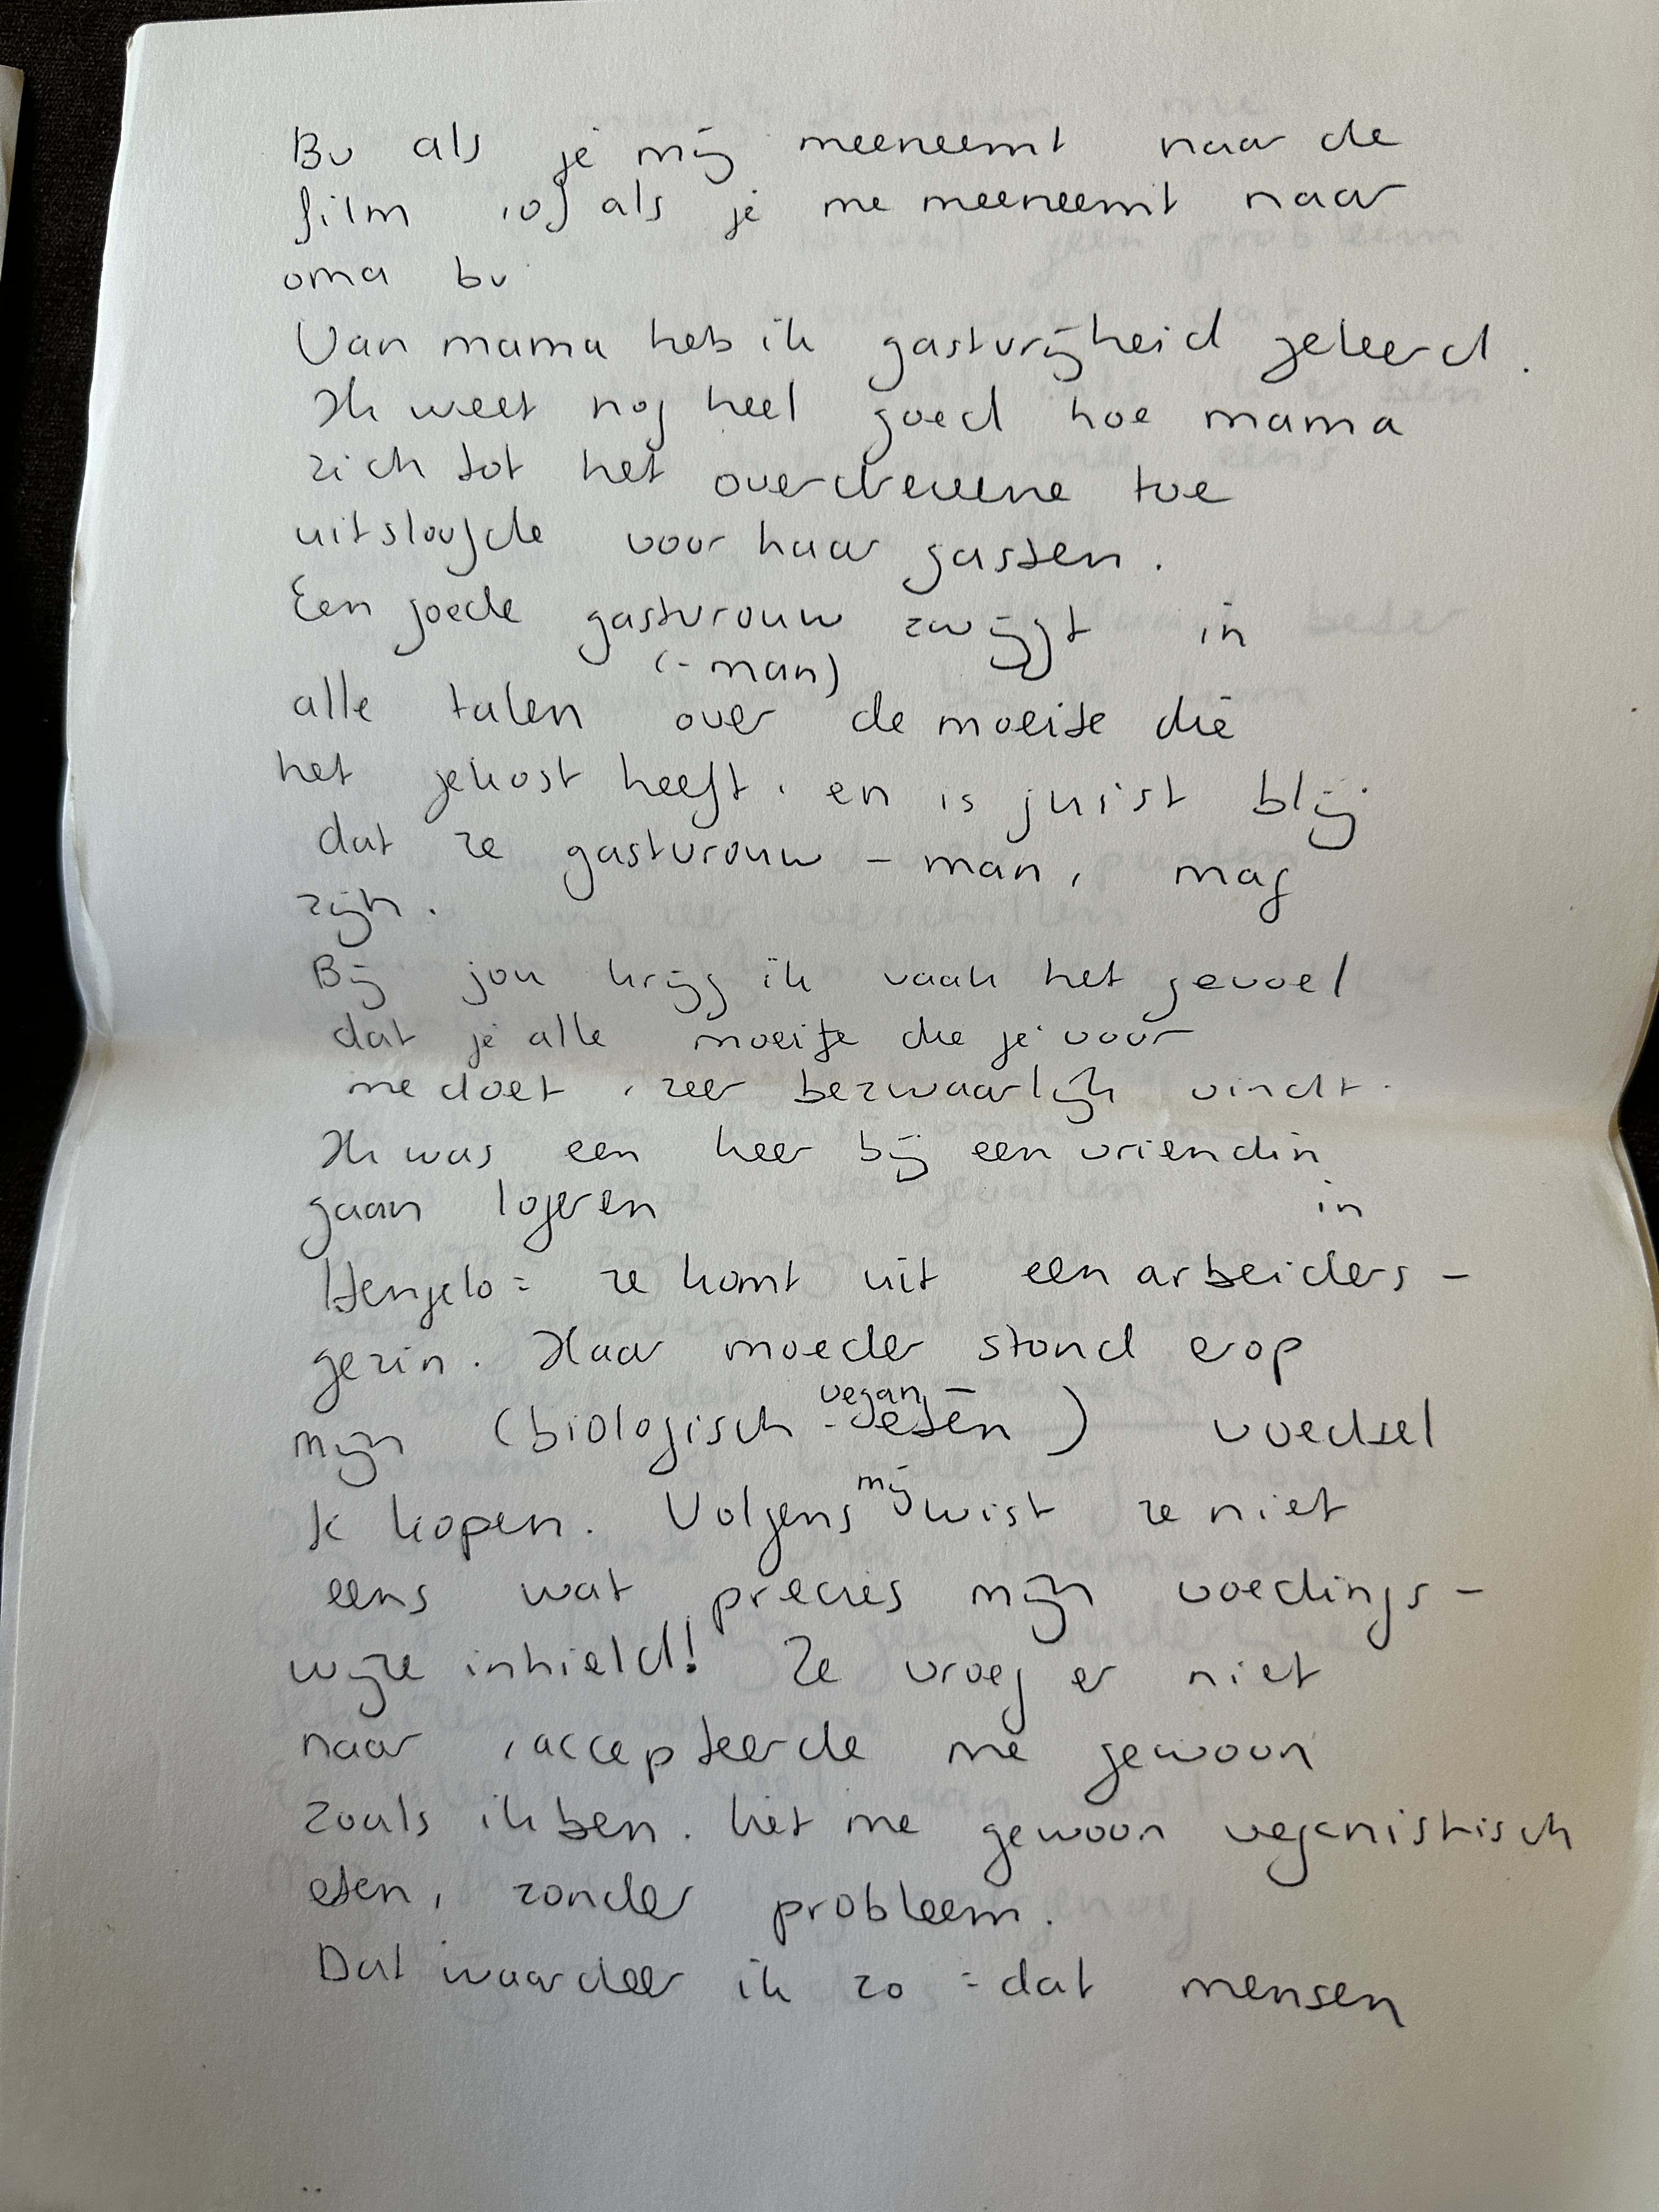 Bv als je mij meeneemt naar de
film , of als je me meeneemt naar
oma bv
Van mama heb ik gastvrijheid geleerd.
Ik weet nog heel goed hoe mama
zich tot het overdrevene toe
uitsloofde voor haar gasten.
Een goede gastvrouw zwijgt in
(-man)
alle talen over de moeite die
het gekost heeft, en is juist blij
dat ze gastvrouw - man, mag
zijn.
Bij jou krijg ik vaak het gevoel
dat je alle moeite die je voor
me doet , zeer bezwaarlijk vindt.
Ik was een keer bij een vriendin
gaan logeren in
Hengelo: ze komt uit een arbeiders-
gezin. Haar moeder stond erop
vegan -
mijn (biologisch - eten) voedsel
te kopen. Volgens mij wist ze niet
eens wat precies mijn voedings-
wijze inhield! Ze vroeg er niet
naar , accepteerde me gewoon
zoals ik ben. Liet me gewoon veganistisch
eten, zonder probleem.
Dat waardeer ik zo : dat mensen